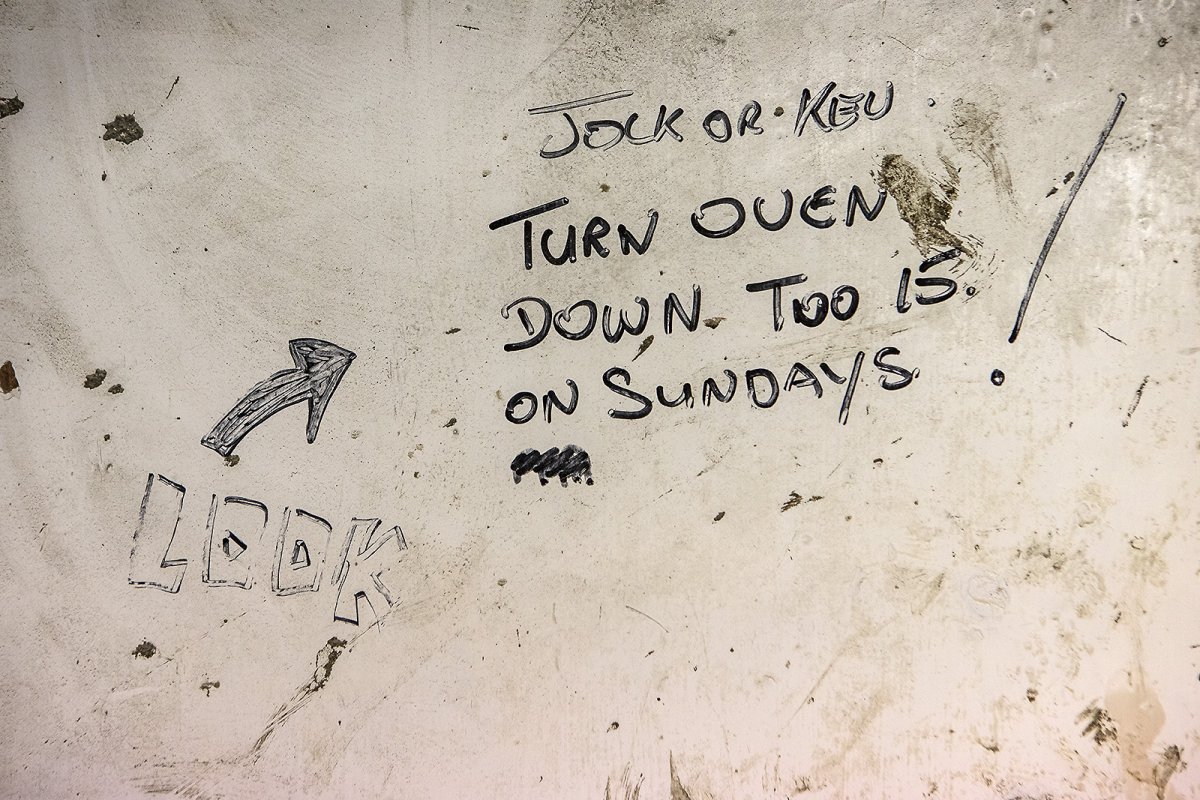 JOCK OR KEV.
TURN OVEN
DOWN TOO 15.
ON SUNDAYS. !
LOOK